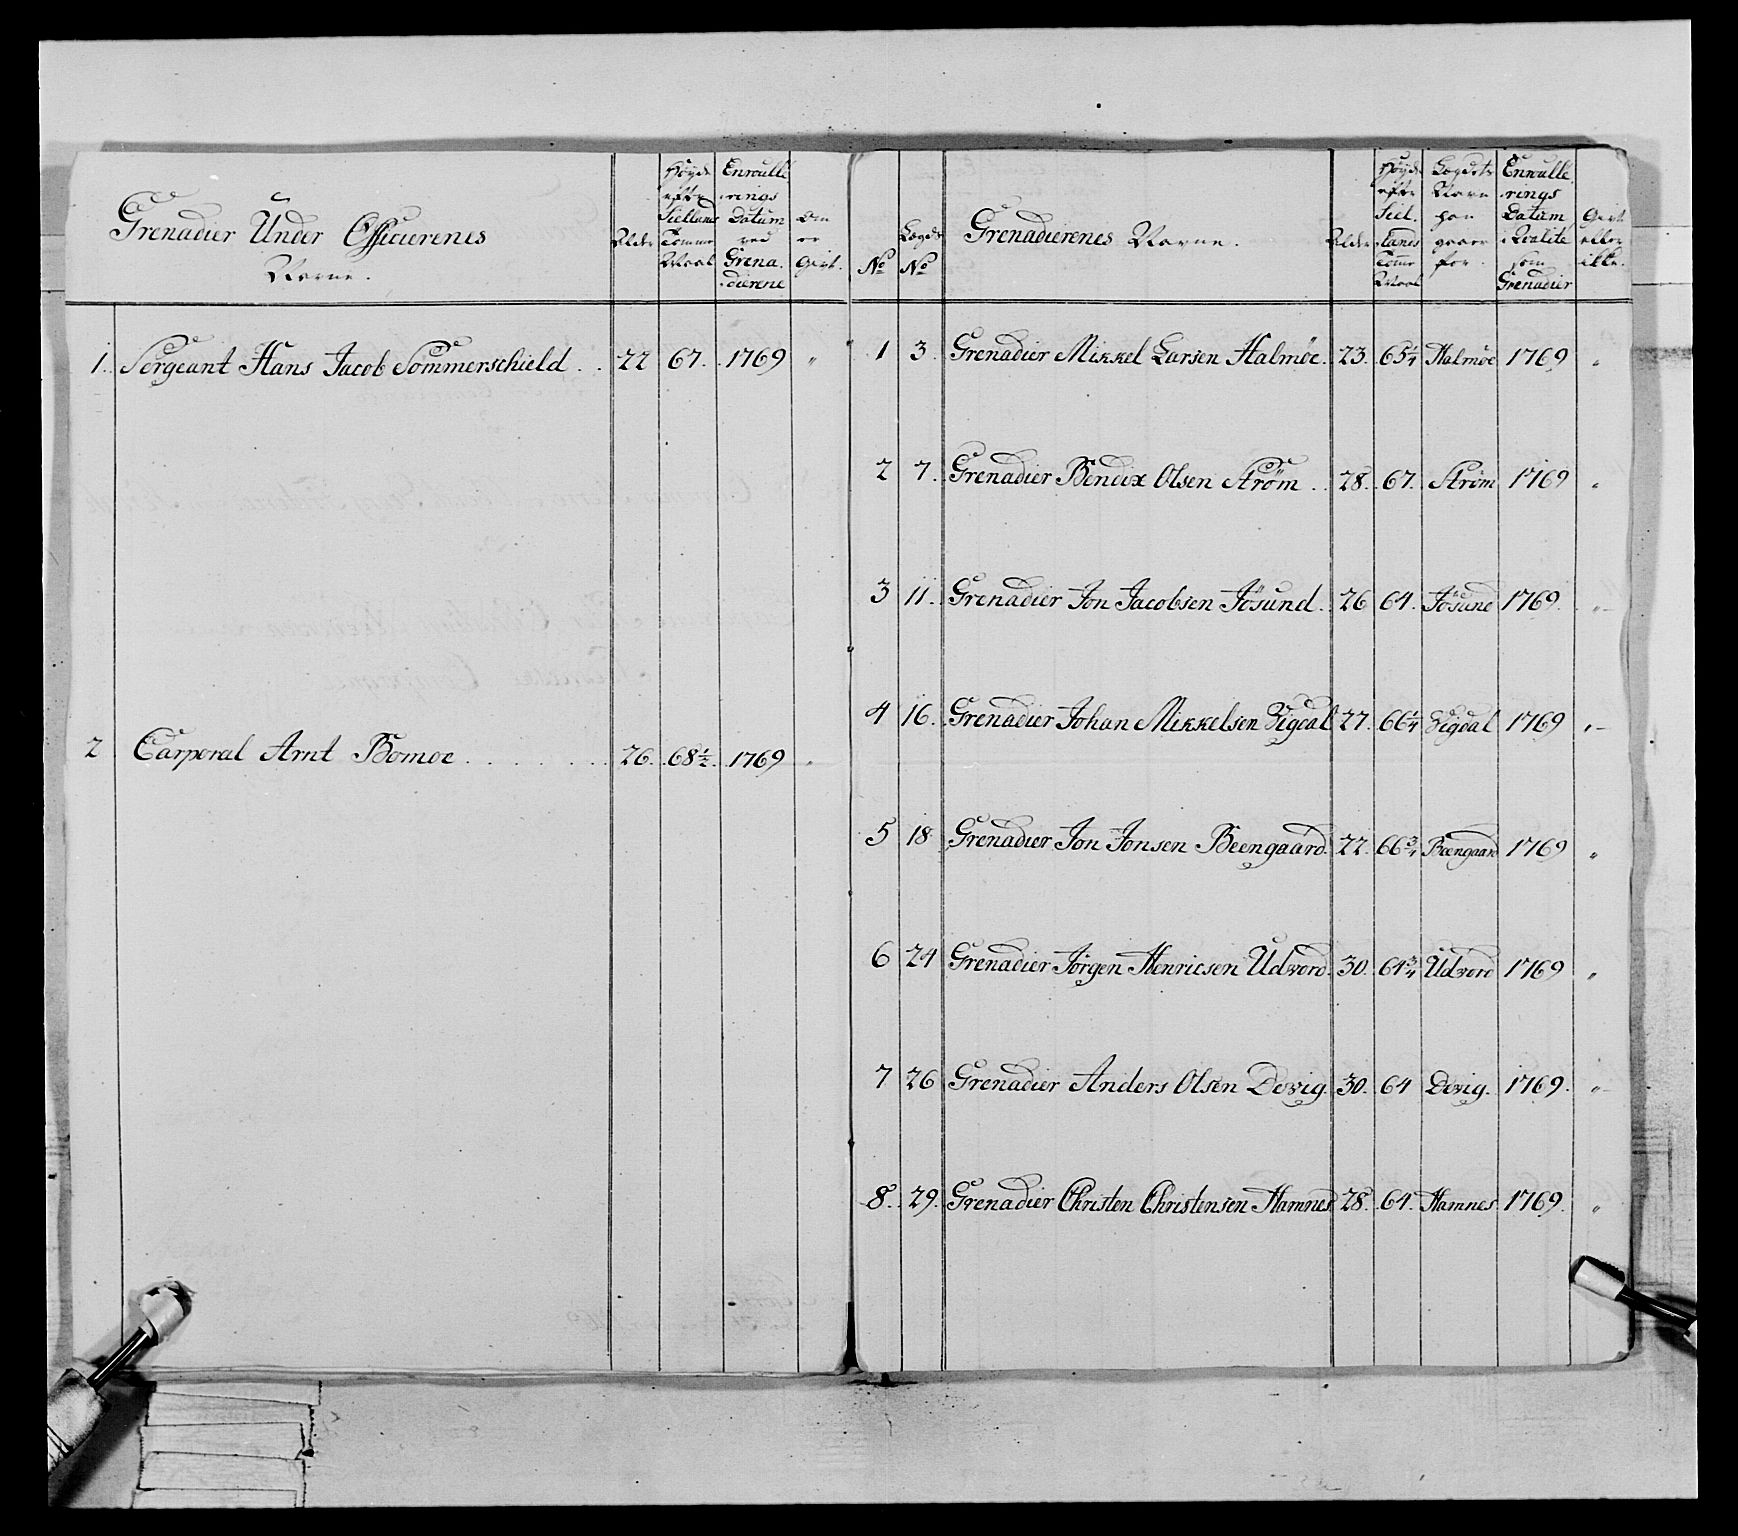 Grenadier Under Officierenes
Navne.
Alder
Høyde
efter
Siellands
Tomme
Maal
Enroulle
rings
Datum
ved
Grena
dierene
Om
er
Givt.
1. Sergeant Hans Jacob Sommerschield . . 22 67. 1769 "
2 Carporal Arnt Bomoe . . . . . . . 26. 68½. 1769 "
No
Lægds
No
Grenadierenes Navne.
Alder
Høyde
efter
Siel.
lands
Tome
Maal
Lægdets
Navn
han
staaer
for.
Enroulle
rings
Datum
Qvalite
som
Grenadier
Givt
eller
ikke.
1 3. Grenadier Mikkel Larsen Halmöe. 23. 65¼ Halmöe 1769 "
2 7. Grenadier Bendix Olsen Strøm . . 28. 67. Strøm 1769 "
3 11. Grenadier Jon Jacobsen Jösund. 26 64. Jösund 1769. "
4 16. Grenadier Johan Mikkelsen Vigdal 27. 66¼ Vigdal 1769 "
5 18 Grenadier Jon Jonsen Beengaard. 22. 66¾ Beengaard 1769 "
6 24 Grenadier Jørgen Henricsen Udvord. 30. 64¾ Udvord 1769 "
7 26 Grenadier Anders Olsen Devig. 30. 64 Devig. 1769. "
8. 29. Grenadier Christen Christensen Hamnes 28. 64. Hamnes. 1769. "